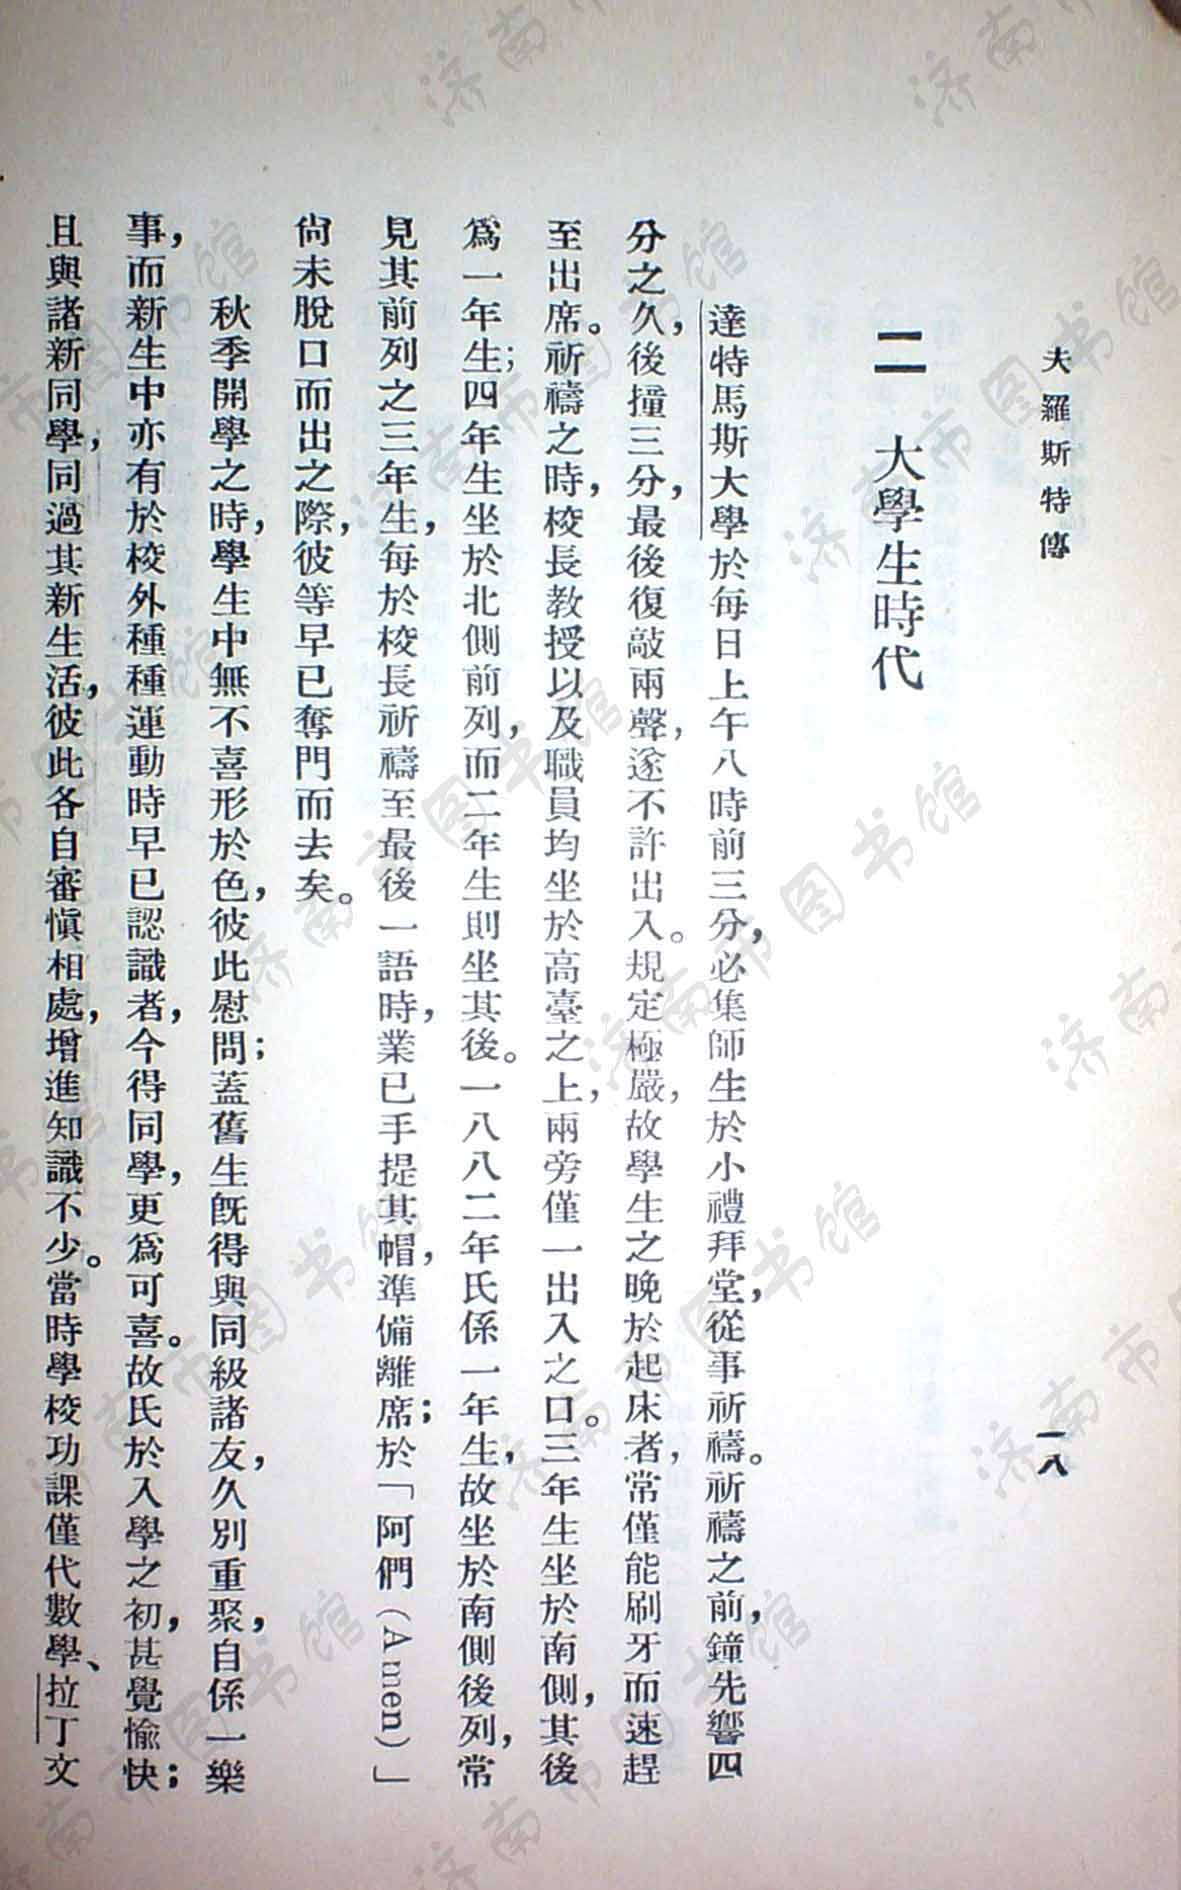 夫羅斯特傳
一八
二 大學生時代
達特馬斯大學於每日上午八時前三分，必集師生於小禮拜堂，從事祈禱。祈禱之前，鐘先響四
分之久，後撞三分，最後復敲兩聲，遂不許出入。規定極嚴，故學生之晚於起床者常僅能刷牙而速趕
至出席。祈禱之時，校長教授以及職員均坐於高臺之上，兩旁僅一出入之口。三年生坐於南側，其後
爲一年生；四年生坐於北側前列，而二年生則坐其後。一八八二年氏係一年生，故坐於南側後列，常
見其前列之三年生，每於校長祈禱至最後一語時，業已手提其帽，準備離席；於「阿們（Amen）」
尙未脫口而出之際，彼等早已奪門而去矣。
秋季開學之時，學生中無不喜形於色，彼此慰問；蓋舊生既得與同級諸友，久別重聚，自係一樂
事，而新生中亦有於校外種種運動時早已認識者，今得同學，更爲可喜。故氏於入學之初，甚覺愉快；
且與諸新同學，同過其新生活，彼此各自審愼相處，增進知識不少。當時學校功課僅代數學、拉丁文
济南市图书馆